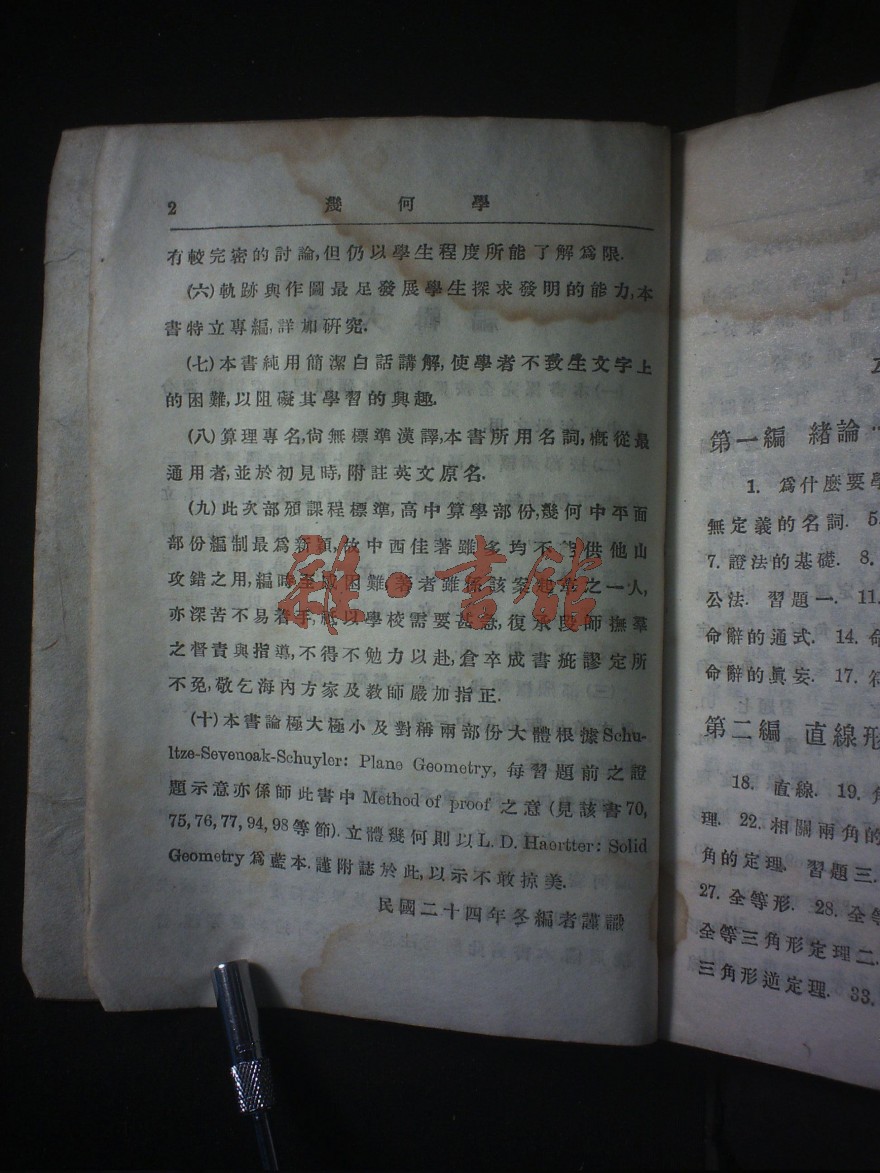 2 幾何學
有較完密的討論,但仍以學生程度所能了解爲限.
(六)軌跡與作圖最足發展學生探求發明的能力,本
書特立專編,詳加研究.
(七)本書純用簡潔白話講解,使學者不致生文字上
的困難,以阻礙其學習的興趣.
(八)算理專名,尙無標準漢譯,本書所用名詞,槪從最
通用者,並於初見時,附註英文原名.
(九)此次部頒課程標準,高中算學部份,幾何中平面
部份編制最爲新穎,故中西佳著雖多均不能供他山
攻錯之用,編時至成困難,著者雖係該案起草之一人,
亦深苦不易着手,祗以學校需要甚急,復承段師撫羣
之督責與指導,不得不勉力以赴,倉卒成書疵謬定所
不免,敬乞海內方家及教師嚴加指正.
(十)本書論極大極小及對稱兩部份大體根據Schu-
ltze-Sevenoak-Schuyler: Plane Geometry, 每習題前之證
題示意亦係師此書中 Method of proof 之意(見該書70,
75,76,77,94,98等節).立體幾何則以L. D. Haertter: Solid
Geometry爲藍本.謹附誌於此,以示不敢掠美.
民國二十四年冬編者謹識
雜·書館
第一編 緒論
1. 爲什麼要學
無定義的名詞. 5.
7. 證法的基礎. 8.
公法. 習題一. 11.
命辭的通式. 14. 命
命辭的眞妄. 17. 符
第二編 直線形
18. 直線. 19. 角
理. 22. 相關兩角的
角的定理. 習題三.
27. 全等形. 28. 全等
全等三角形定理二.
三角形逆定理. 33.